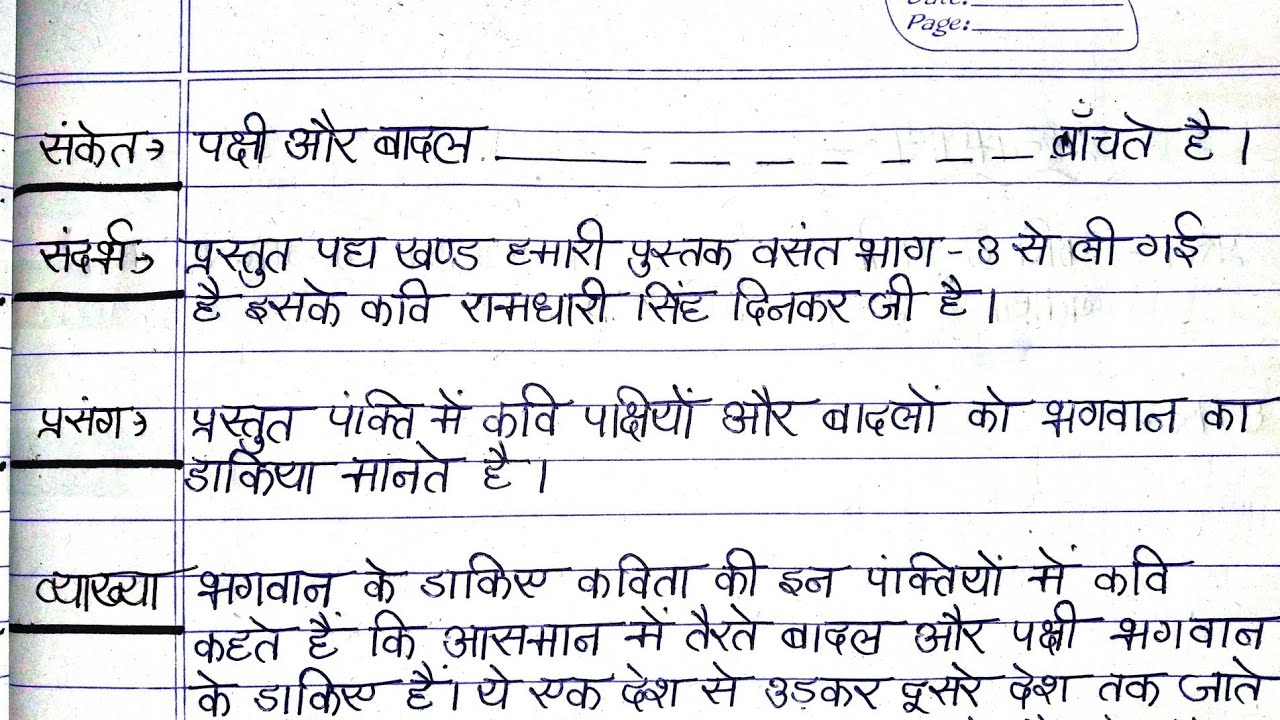 Page:
संकेत→ पक्षी और बादल ____ __ _ _ _ _ __ बाँचते है।
संदर्भ→ प्रस्तुत पद्य खण्ड हमारी पुस्तक वसंत भाग - 3 से ली गई
है इसके कवि रामधारी सिंह दिनकर जी है।
प्रसंग→ प्रस्तुत पंक्ति में कवि पक्षियों और बादलों को भगवान का
डाकिया मानते है।
व्याख्या भगवान के डाकिए कविता की इन पंक्तियों में कवि
कहते हैं कि आसमान में तैरते बादल और पक्षी भगवान
के डाकिए हैं। ये एक देश से उड़कर दूसरे देश तक जाते